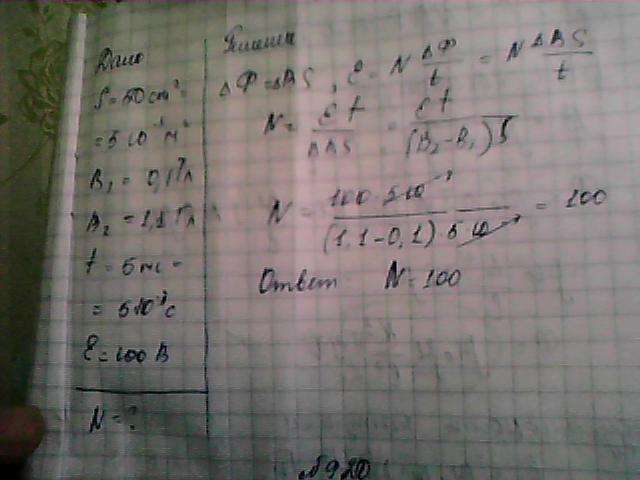 Дано
S = 50 cm² =
= 5 10⁻³ м²
B₁ = 0,1 Тл
B₂ = 1,1 Тл
t = 5 мс =
= 5·10⁻³ с
ℰ = 100 В
N = ?
Решение
ΔФ = ΔBS, ℰ = N ΔФ/t = N ΔBS/t
N = ℰt/ΔBS = ℰt/(B₂-B₁)S
N = 100·5·10⁻³/(1,1-0,1) 5·10⁻³ = 100
Ответ N=100
№920